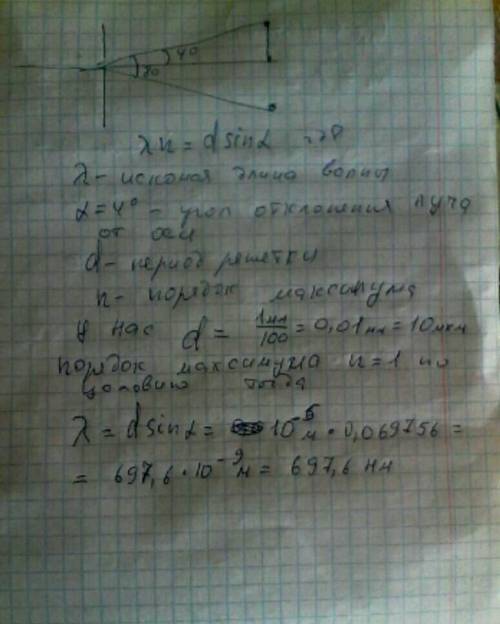 4°
8°
λn = d sinα =>
λ - искомая длина волны
α = 4° - угол отклонения луча
от оси
d - период решетки
n - порядок максимума
у нас d = 1мм/100 = 0,01мм = 10 мкм
порядок максимума n = 1 по
условию тогда
λ = d sinα = 10⁻⁵ м · 0,069756 =
= 697,6 · 10⁻⁹ м = 697,6 нм